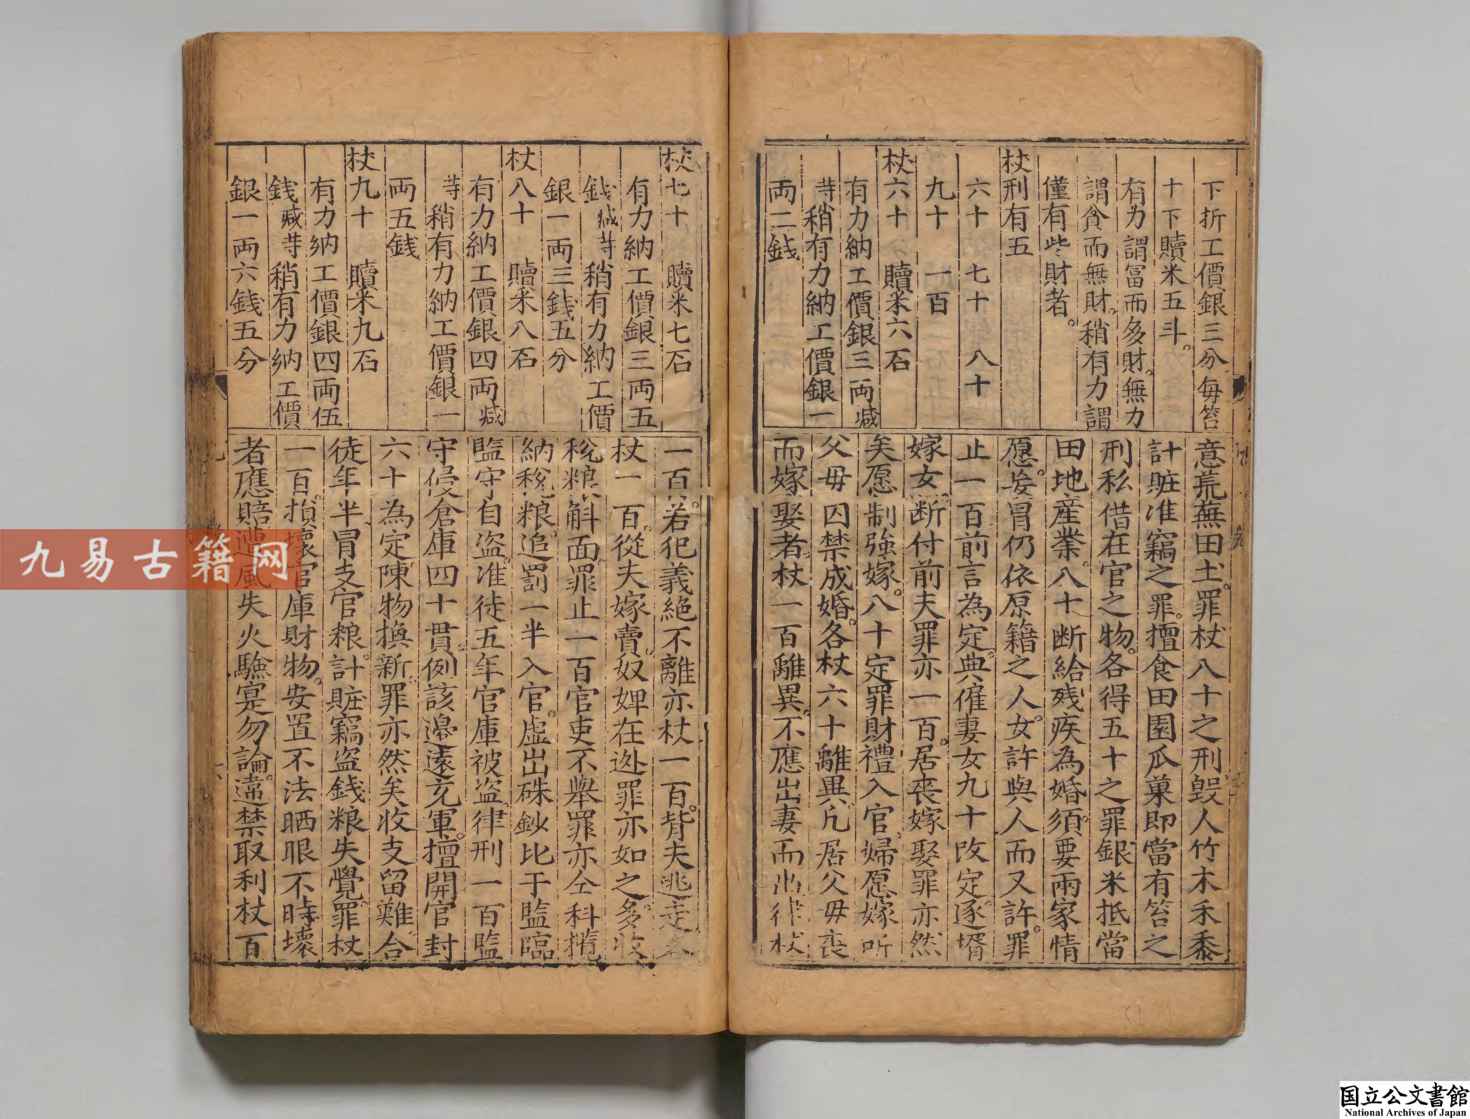 下折工價銀三分每笞
十下贖米五斗。
有力謂富而多財。無力
謂貧而無財。稍有力謂
僅有些財者。
杖刑有五
六十 七十 八十
九十 一百
杖六十 贖米六石
有力納工價銀三両減
等稍有力納工價銀一
両二錢
意荒蕪田土。罪杖八十之刑毀人竹木禾黍
計賍准竊之罪。擅食田園瓜菓即當有笞之
刑私借在官之物。各得五十之罪銀米抵當
田地産業。八十断給残疾為婚須。要兩家情
愿。妄冒仍依原籍之人。女許與人而又許。罪
止一百前言為定。典僱妻女九十改定。逐壻
嫁女。断付前夫罪亦一百。居丧嫁娶罪亦然
矣愿制強嫁。八十定罪財禮入官。婦愿嫁听
父毋囚禁成婚。各杖六十離異凡居父毋丧
而嫁娶者。杖一百離異。不應出妻而出律杖
杖七十 贖米七石
有力納工價銀三両五
錢減等稍有力納工價
銀一両三錢五分
杖八十 贖米八石
有力納工價銀四両減
等稍有力納工價銀一
両五錢
杖九十 贖米九石
有力納工價銀四両伍
錢減等稍有力納工價
銀一両六錢五分
一百。若犯義絶不離亦杖一百。背夫逃走
杖一百。從夫嫁賣。奴婢在迯罪亦如之。多收
稅粮斛面。罪止一百官吏不舉罪亦仝科
納稅粮。追罰一半入官。虚出硃鈔比于監臨
監守自盗。准徒五年官庫被盗律刑一百監
守侵倉庫四十貫。例該邊遠充軍。擅開官封
六十為定陳物換新。罪亦然矣收支留難。合
徒年半。冒支官粮。計賍竊盗錢粮失覺。罪杖
一百損壊官庫財物。安置不法晒眼不時壊
者應賠遭風失火驗寔勿論。違禁取利杖百
九易古籍网
国立公文書館
National Archives of Japan